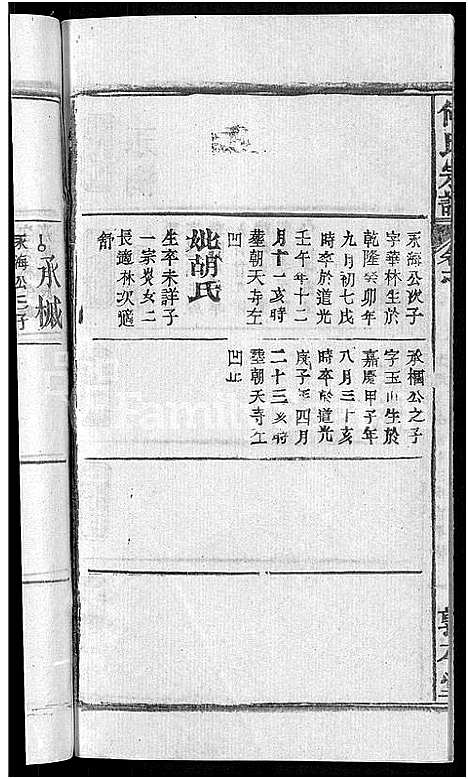 氏宗譜
永海公次子
字華林生於
乾隆癸卯年
九月初七戌
時卒於道光
壬午年十二
月十一亥時
塟朝天寺左
凹
妣胡氏
生卒未詳子
一宗炎女二
長適林次適
舒
承楓公之子
字玉山生於
嘉慶甲子年
八月三十亥
時卒於道光
庚子年四月
二十三亥時
塟朝天寺左
凹
承椷
永海公三子